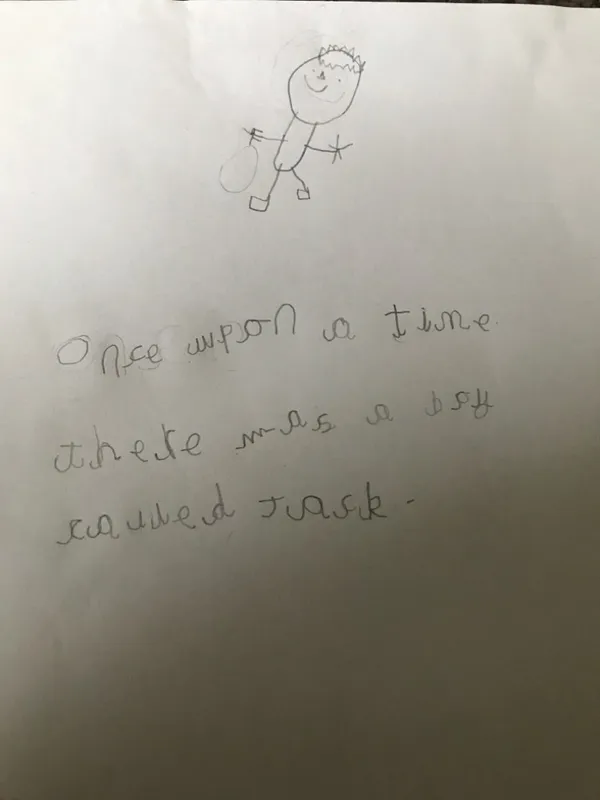 Once upon a time
there was a boy
caulled Jack.